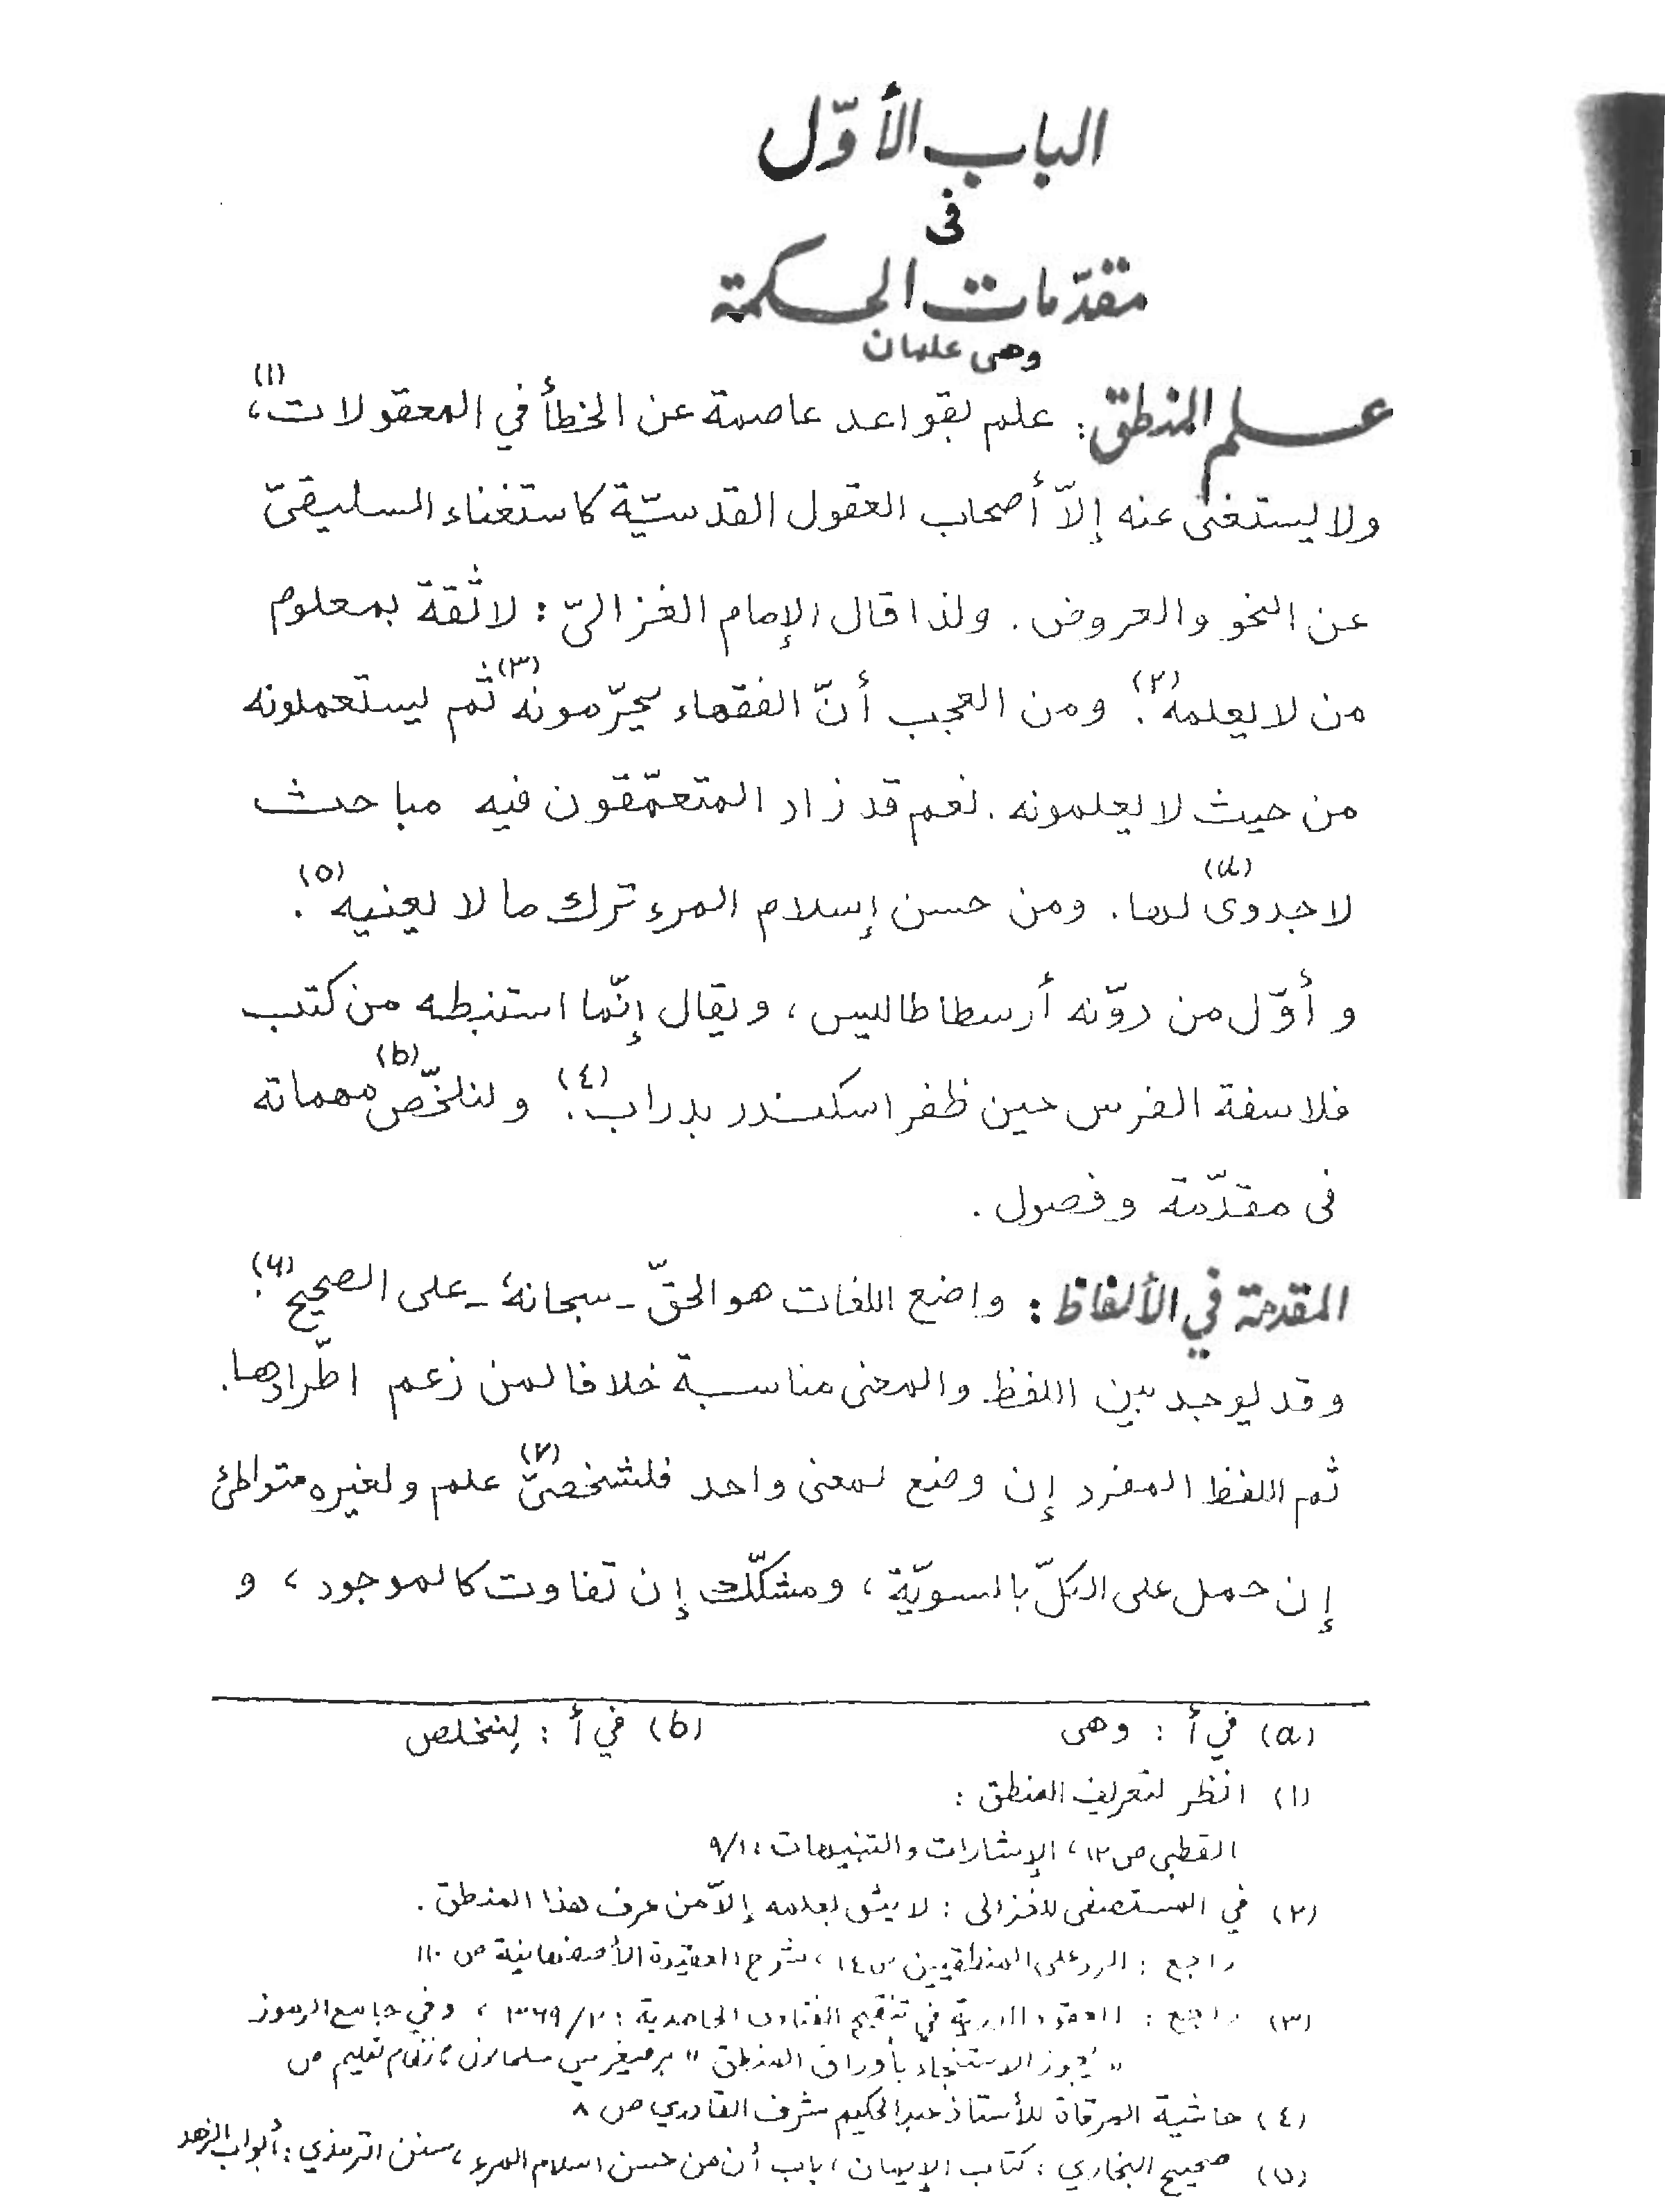 الباب الأوّل
فى
مقدّمات الحكمة
وهى علمان
علم المنطق: علم بقواعد عاصمة عن الخطأ في المعقولات (١)،
ولا يستغنى عنه إلاّ أصحاب العقول القدسيّة كاستغناء السليقىّ
عن النحو والعروض. ولذا قال الإمام الغزالىّ: لا ثقة بمعلوم
من لا يعلمه (٢). ومن العجب أنّ الفقهاء يحرّمونه (٣) ثم يستعملونه
من حيث لا يعلمونه. نعم قد زاد المتعمّقون فيه مباحث
لا جدوى (a) لها. ومن حسن إسلام المرء ترك ما لا يعنيه (٥).
و أوّل من دوّنه أرسطاطاليس، ويقال إنّما استنبطه من كتب
فلاسفة الفرس حين ظفر اسكندر بدراب (٤). ولنلخّص (b) مهماته
فى مقدّمة وفصول.
المقدمة في الألفاظ: واضع اللغات هو الحقّ - سبحانه - على الصحيح (٦).
وقد يوجد بين اللفظ والمعنى مناسبة خلافا لمن زعم اطّرادها.
ثم اللفظ المفرد إن وضع لمعنى واحد فلشخصىّ (٧) علم ولغيره متواطئ
إن حمل على الكلّ بالسويّة، ومشكّك إن تفاوت كالموجود، و
(a) في أ: وهى (b) في أ: لنتخلص
(١) انظر لتعريف المنطق:
القطبى ص ١٢، الإشارات والتنبيهات ٩/١
(٢) في المستصفى للغزالى: لا يثق بعلمه إلاّ من عرف هذا المنطق.
راجع: الرد على المنطقيين ص ١٤، شرح العقيدة الأصفهانية ص ١١٠
(٣) راجع: العقود الدرية في تنقيح الفتاوى الحامدية: ٣٦٩/٢، وفي جامع الرموز
"يجوز الاستنجاء بأوراق المنطق" برصغير مىں مسلمانوں كا نظام تعليم ص
(٤) حاشية المرقاة للأستاذ عبد الحكيم شرف القادري ص ٨
(٥) صحيح البخاري: كتاب الإيمان، باب أن من حسن اسلام المرء، سنن الترمذي: أبواب الزهد